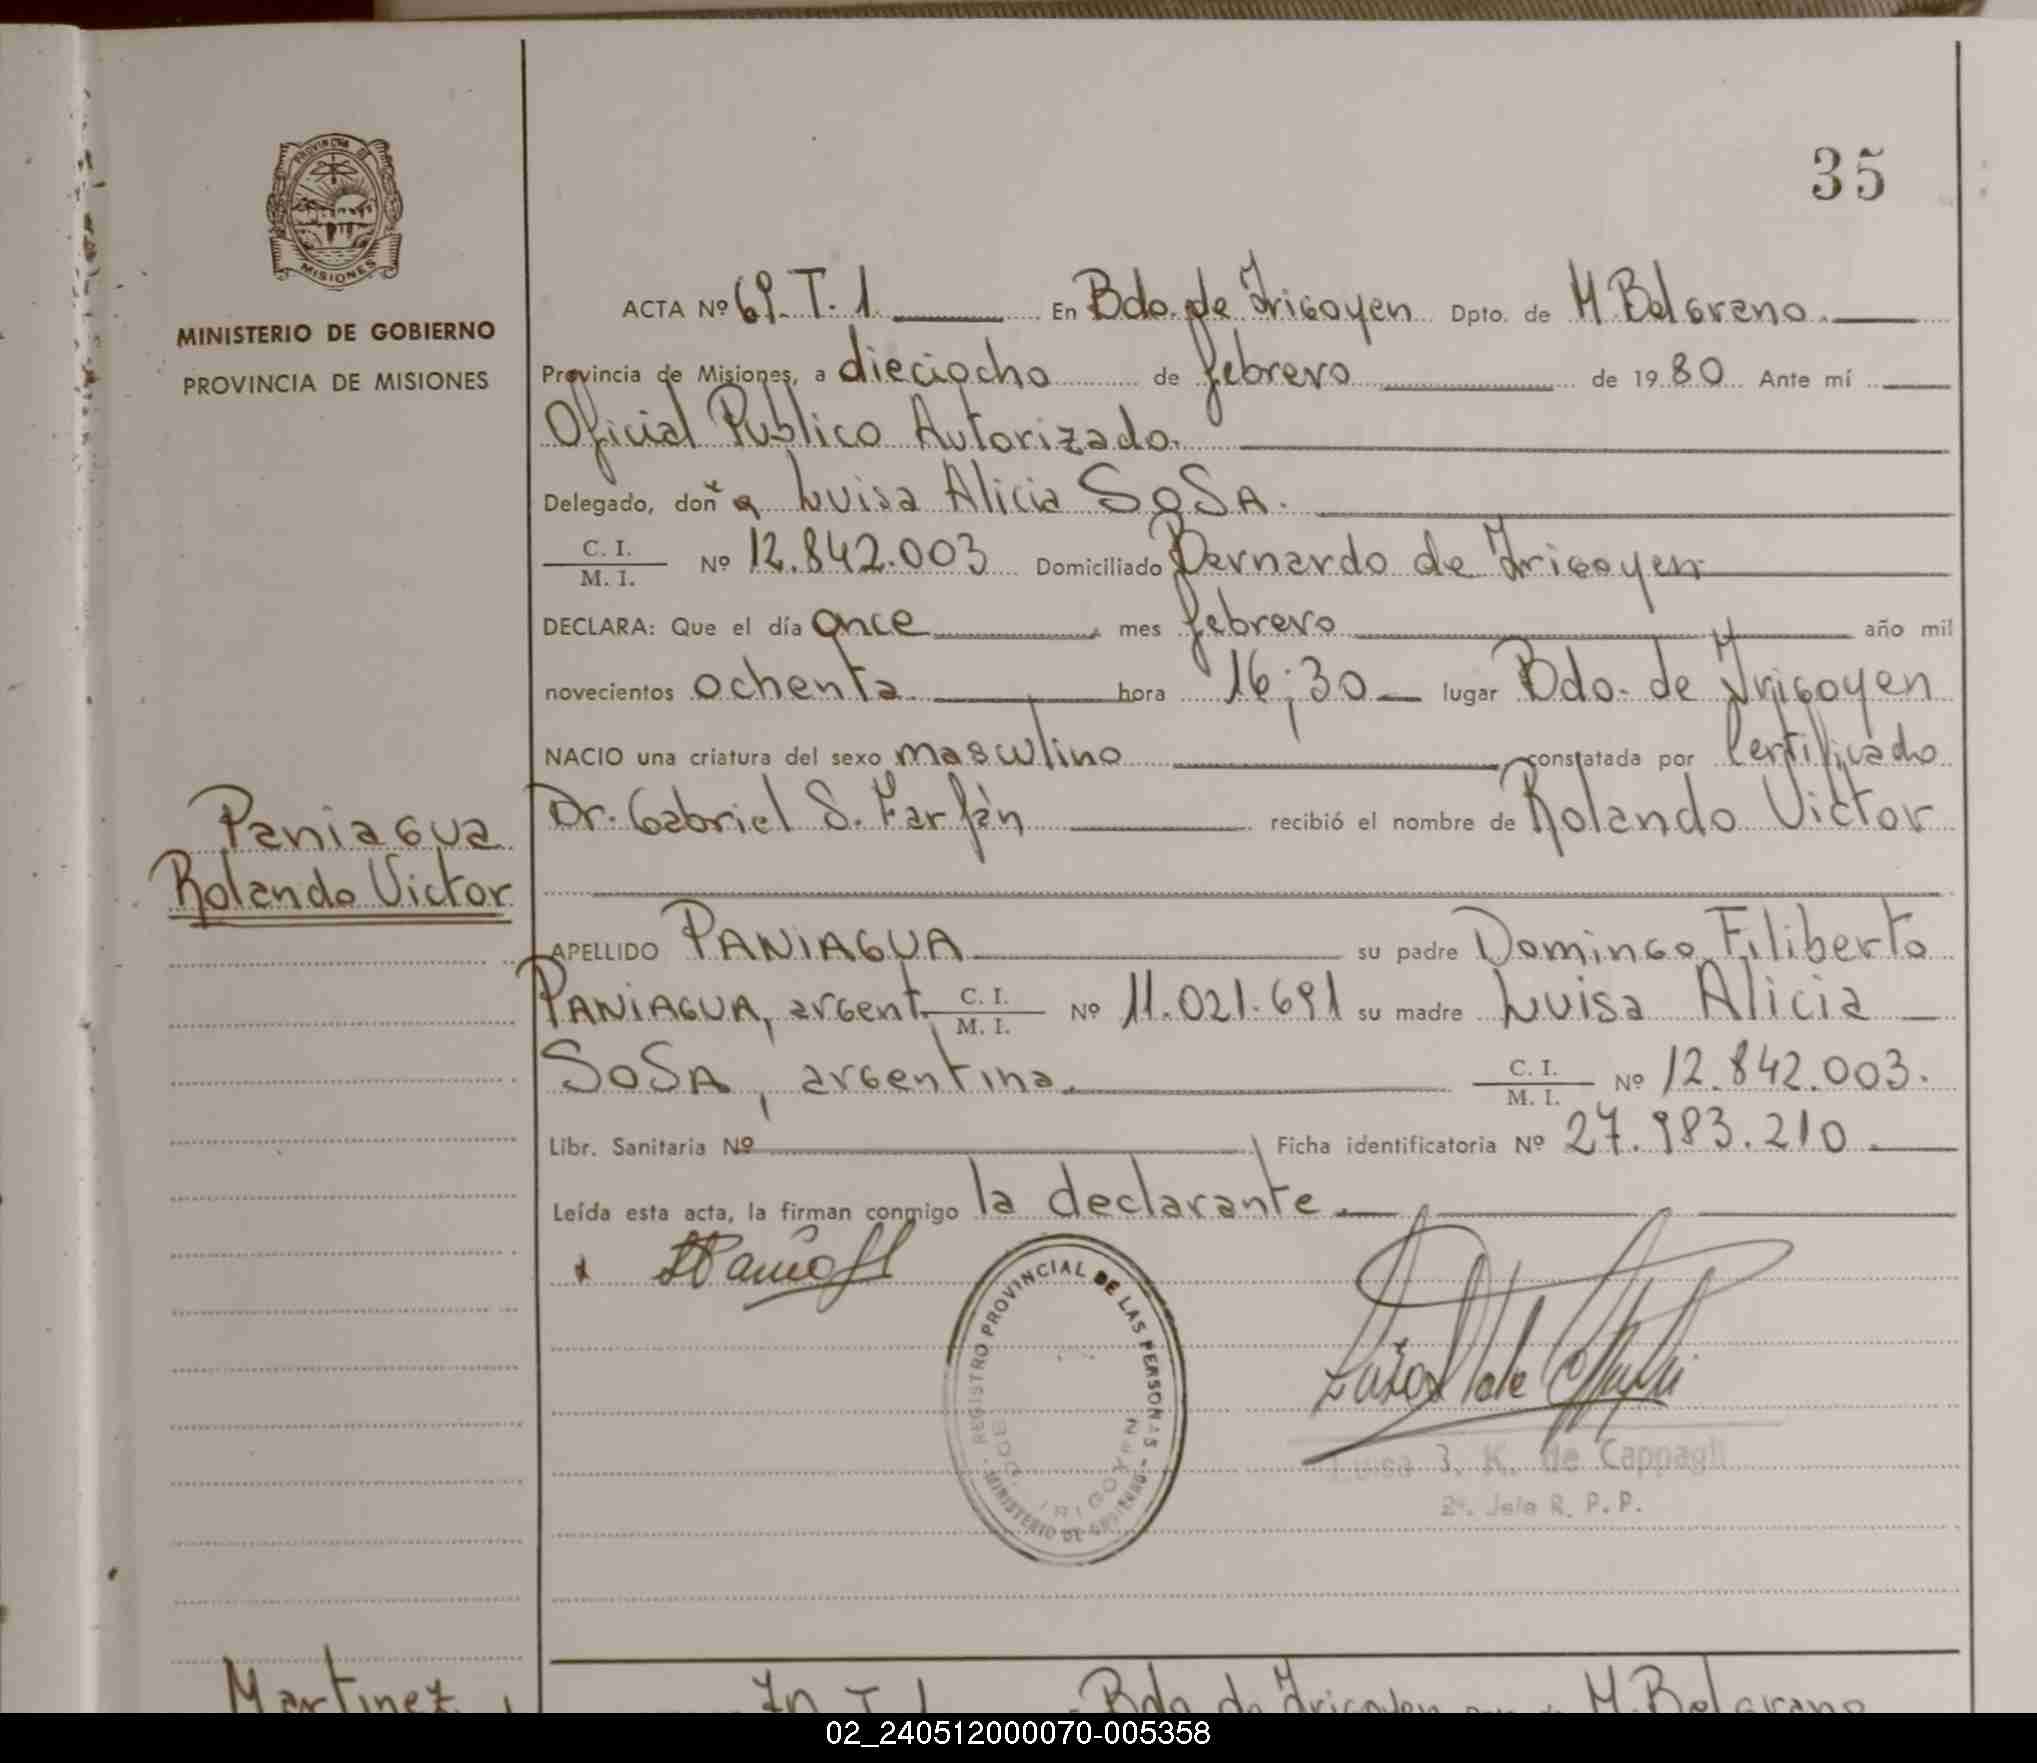 PROVINCIA DE
MISIONES
MINISTERIO DE GOBIERNO
PROVINCIA DE MISIONES
35
ACTA Nº 69. T. 1 En Bdo. de Irigoyen Dpto. de M. Belgrano.
Provincia de Misiones, a dieciocho de febrero de 19 80 Ante mí
Oficial Publico Autorizado.
Delegado, doñ a Luisa Alicia SOSA.
C. I. / M. I. Nº 12.842.003 Domiciliado Bernardo de Irigoyen
DECLARA: Que el día once mes febrero año mil
novecientos ochenta hora 16;30 lugar Bdo. de Irigoyen
NACIO una criatura del sexo masculino, constatada por Certificado
Dr. Gabriel S. Farfán recibió el nombre de Rolando Victor
Paniagua
Rolando Victor
APELLIDO PANIAGUA su padre Domingo Filiberto
PANIAGUA, argent. C. I. / M. I. Nº 11.021.691 su madre Luisa Alicia
SOSA, argentina. C. I. / M. I. Nº 12.842.003.
Libr. Sanitaria Nº Ficha identificatoria Nº 27.983.210
Leída esta acta, la firman conmigo la declarante.
REGISTRO PROVINCIAL DE LAS PERSONAS
MINISTERIO DE GOBIERNO
BDO. IRIGOYEN
Luisa J. K. de Cappagli
2º. Jefe R. P. P.
Martinez
T. 1 Bdo de Irigoyen M. Belgrano
02_240512000070-005358